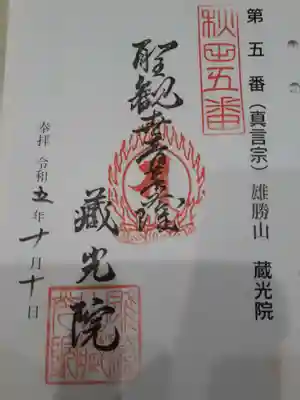 第五番(真言宗)雄勝山 蔵光院
秋田五番
聖観世音菩薩
藏光院
奉拝 令和五年十月十日